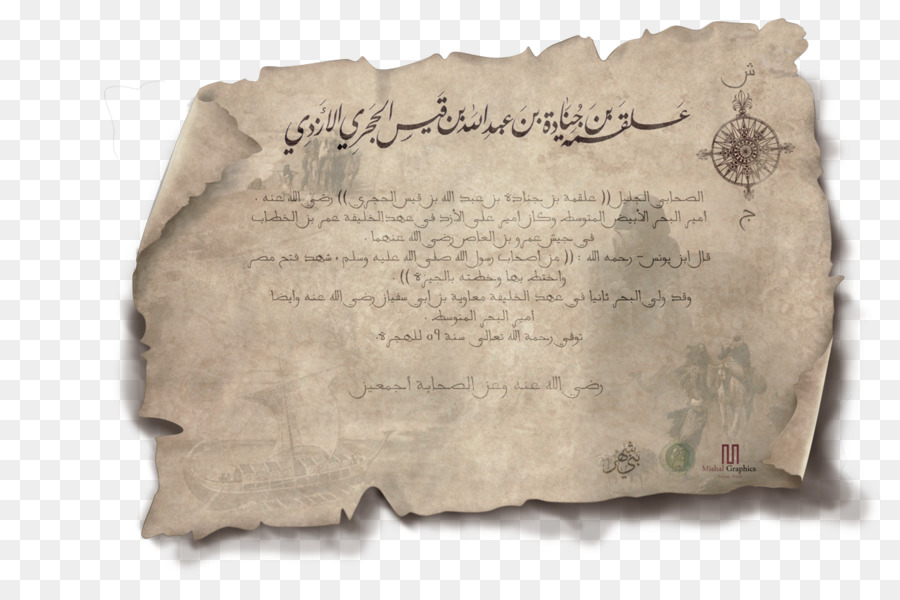 ش
عَلقمَة بن جُنَادة بن عبدالله بن قَيس الحَجَري الازَدي
ج
الصحابي الجليل (( علقمة بن جنادة بن عبد الله بن قيس الحجري )) رضي الله عنه .
امير البحر الأبيض المتوسط وكان امير على الأزد في عهد الخليفة عمر بن الخطاب
في جيش عمرو بن العاص رضي الله عنهما .
قال ابن يونس- رحمه الله : (( من أصحاب رسول الله صلى الله عليه وسلم ، شهد فتح مصر
واختط بها وخطته بالجيزة )) .
وقد ولى البحر ثانيا في عهد الخليفة معاوية بن ابي سفيان رضي الله عنه وايضا
امير البحر المتوسط .
توفي رحمة الله تعالى سنة ٥٩ للهجرة.
رضي الله عنه وعن الصحابة اجمعين
بني شهر
Mishal Graphics